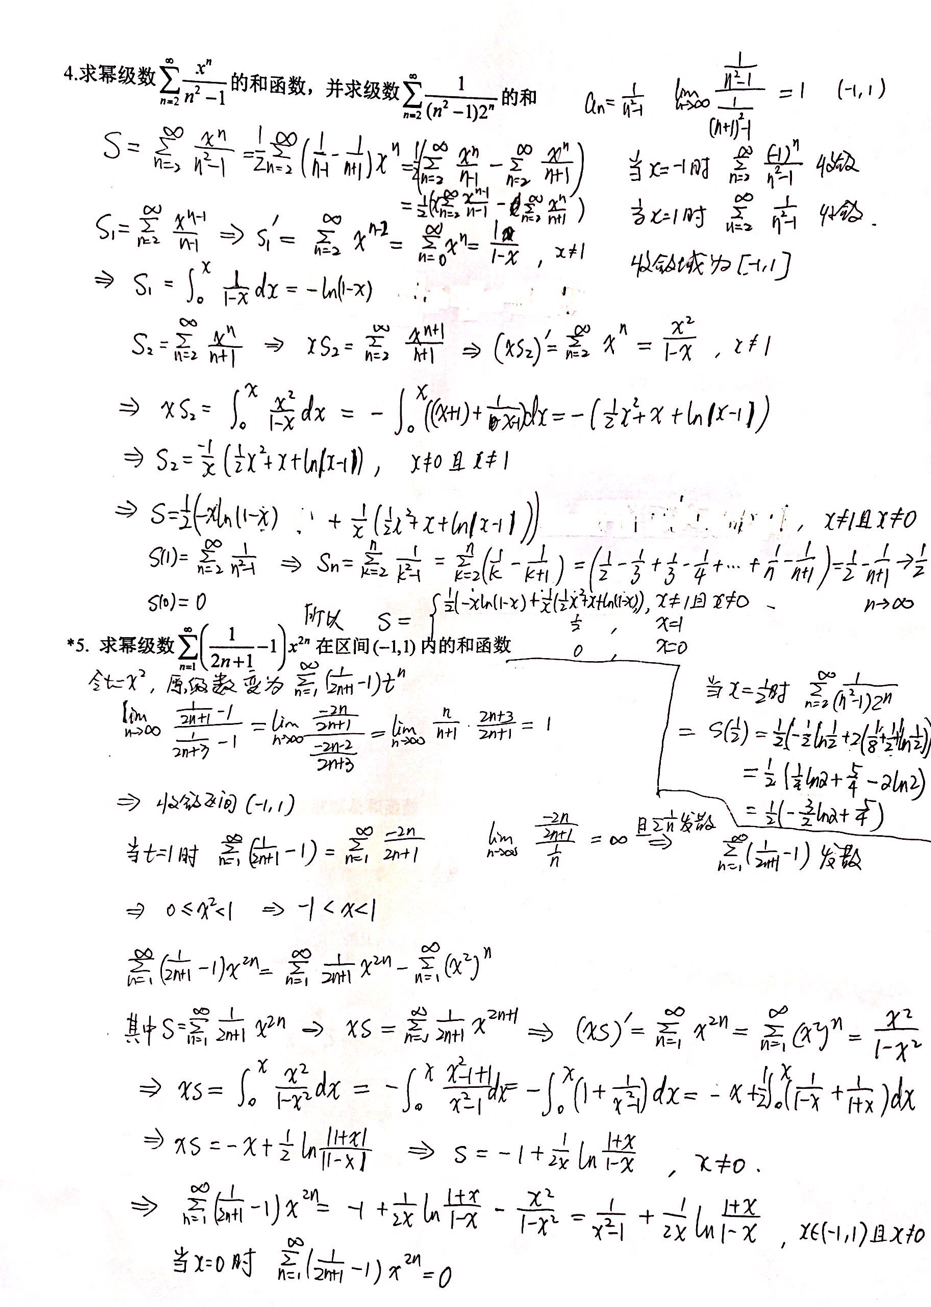 4.求幂级数 $\sum_{n=2}^{\infty}\frac{x^n}{n^2-1}$ 的和函数，并求级数 $\sum_{n=2}^{\infty}\frac{1}{(n^2-1)2^n}$ 的和
$a_n=\frac{1}{n^2-1}$ $\lim_{n\to\infty}\frac{\frac{1}{n^2-1}}{\frac{1}{(n+1)^2-1}}=1$ (-1,1)
当x=-1时 $\sum_{n=2}^{\infty}\frac{(-1)^n}{n^2-1}$ 收敛
当x=1时 $\sum_{n=2}^{\infty}\frac{1}{n^2-1}$ 收敛.
收敛域为[-1,1]
$S=\sum_{n=2}^{\infty}\frac{x^n}{n^2-1}=\frac{1}{2}\sum_{n=2}^{\infty}(\frac{1}{n-1}-\frac{1}{n+1})x^n=\frac{1}{2}(\sum_{n=2}^{\infty}\frac{x^n}{n-1}-\sum_{n=2}^{\infty}\frac{x^n}{n+1})$
$=\frac{1}{2}(x\sum_{n=2}^{\infty}\frac{x^{n-1}}{n-1}-\sum_{n=2}^{\infty}\frac{x^n}{n+1})$
$S_1=\sum_{n=2}^{\infty}\frac{x^{n-1}}{n-1}\Rightarrow S_1'=\sum_{n=2}^{\infty}x^{n-2}=\sum_{n=0}^{\infty}x^n=\frac{1}{1-x}$ , x≠1
$\Rightarrow S_1=\int_0^x\frac{1}{1-x}dx=-\ln(1-x)$
$S_2=\sum_{n=2}^{\infty}\frac{x^n}{n+1}\Rightarrow xS_2=\sum_{n=2}^{\infty}\frac{x^{n+1}}{n+1}\Rightarrow(xS_2)'=\sum_{n=2}^{\infty}x^n=\frac{x^2}{1-x}$ , x≠1
$\Rightarrow xS_2=\int_0^x\frac{x^2}{1-x}dx=-\int_0^x((x+1)+\frac{1}{x-1})dx=-(\frac{1}{2}x^2+x+\ln|x-1|)$
$\Rightarrow S_2=\frac{-1}{x}(\frac{1}{2}x^2+x+\ln|x-1|)$ , x≠0且x≠1
$\Rightarrow S=\frac{1}{2}(-x\ln(1-x)+\frac{1}{x}(\frac{1}{2}x^2+x+\ln|x-1|))$ , x≠1且x≠0
$S(1)=\sum_{n=2}^{\infty}\frac{1}{n^2-1}\Rightarrow S_n=\sum_{k=2}^{n}\frac{1}{k^2-1}=\sum_{k=2}^{n}(\frac{1}{k}-\frac{1}{k+1})=(\frac{1}{2}-\frac{1}{3}+\frac{1}{3}-\frac{1}{4}+\cdots+\frac{1}{n}-\frac{1}{n+1})=\frac{1}{2}-\frac{1}{n+1}\to\frac{1}{2}$
n→∞
S(0)=0
所以 $S=\begin{cases}\frac{1}{2}(-x\ln(1-x)+\frac{1}{x}(\frac{1}{2}x^2+x+\ln(1-x))),&x≠1且x≠0\\\frac{1}{2},&x=1\\0,&x=0\end{cases}$
当$x=\frac{1}{2}$时 $\sum_{n=2}^{\infty}\frac{1}{(n^2-1)2^n}$
$=S(\frac{1}{2})=\frac{1}{2}(-\frac{1}{2}\ln\frac{1}{2}+2(\frac{1}{8}+\frac{1}{2}+\ln\frac{1}{2}))$
$=\frac{1}{2}(\frac{1}{2}\ln2+\frac{5}{4}-2\ln2)$
$=\frac{1}{2}(-\frac{3}{2}\ln2+\frac{5}{4})$
*5. 求幂级数 $\sum_{n=1}^{\infty}\left(\frac{1}{2n+1}-1\right)x^{2n}$ 在区间(-1,1)内的和函数
令t=x², 原级数变为 $\sum_{n=1}^{\infty}(\frac{1}{2n+1}-1)t^n$
$\lim_{n\to\infty}\frac{\frac{1}{2n+1}-1}{\frac{1}{2n+3}-1}=\lim_{n\to\infty}\frac{\frac{-2n}{2n+1}}{\frac{-2n-2}{2n+3}}=\lim_{n\to\infty}\frac{n}{n+1}\cdot\frac{2n+3}{2n+1}=1$
⇒ 收敛区间(-1,1)
当t=1时 $\sum_{n=1}^{\infty}(\frac{1}{2n+1}-1)=\sum_{n=1}^{\infty}\frac{-2n}{2n+1}$ $\lim_{n\to\infty}\frac{\frac{-2n}{2n+1}}{\frac{1}{n}}=\infty$ 且$\sum\frac{1}{n}$发散 ⇒ $\sum_{n=1}^{\infty}(\frac{1}{2n+1}-1)$ 发散
⇒ 0≤x²<1 ⇒ -1<x<1
$\sum_{n=1}^{\infty}(\frac{1}{2n+1}-1)x^{2n}=\sum_{n=1}^{\infty}\frac{1}{2n+1}x^{2n}-\sum_{n=1}^{\infty}(x^2)^n$
其中$S=\sum_{n=1}^{\infty}\frac{1}{2n+1}x^{2n}\Rightarrow xS=\sum_{n=1}^{\infty}\frac{1}{2n+1}x^{2n+1}\Rightarrow(xS)'=\sum_{n=1}^{\infty}x^{2n}=\sum_{n=1}^{\infty}(x^2)^n=\frac{x^2}{1-x^2}$
$\Rightarrow xS=\int_0^x\frac{x^2}{1-x^2}dx=-\int_0^x\frac{x^2-1+1}{x^2-1}dx=-\int_0^x(1+\frac{1}{x^2-1})dx=-x+\frac{1}{2}\int_0^x(\frac{1}{1-x}+\frac{1}{1+x})dx$
$\Rightarrow xS=-x+\frac{1}{2}\ln\frac{|1+x|}{|1-x|}\Rightarrow S=-1+\frac{1}{2x}\ln\frac{1+x}{1-x}$ , x≠0.
$\Rightarrow\sum_{n=1}^{\infty}(\frac{1}{2n+1}-1)x^{2n}=-1+\frac{1}{2x}\ln\frac{1+x}{1-x}-\frac{x^2}{1-x^2}=\frac{1}{x^2-1}+\frac{1}{2x}\ln\frac{1+x}{1-x}$ , x∈(-1,1)且x≠0
当x=0时 $\sum_{n=1}^{\infty}(\frac{1}{2n+1}-1)x^{2n}=0$